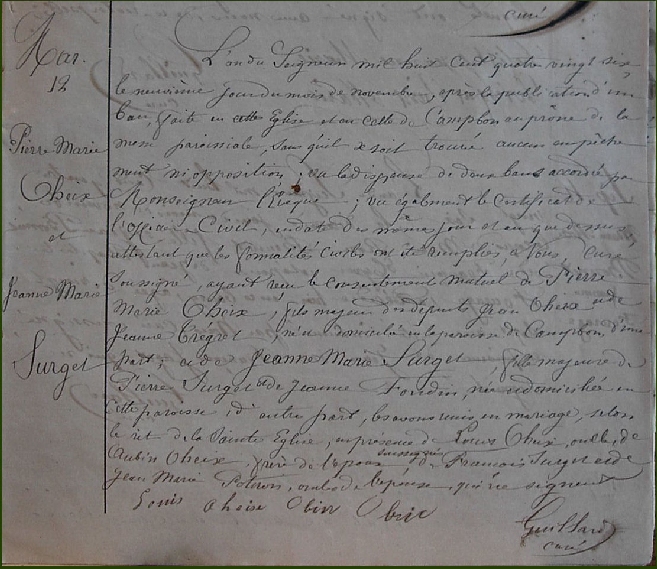 curé
Mar.
12
Pierre Marie
Oheix
et
Jeanne Marie
Surget
L'an du Seigneur mil huit cent quatre vingt six
le neuvième jour du mois de novembre, après la publication d'un
ban, faite en cette Eglise et en celle de Campbon au prône de la
messe paroissiale, sans qu'il se soit trouvé aucun empêche
ment ni opposition ; vu la dispense de deux bans accordée par
Monseigneur l'Evêque ; vu également le certificat de
l'officier Civil, en date des mêmes jour et an que dessus
attestant que les formalités civiles ont été remplies ; Nous, Curé
soussigné, ayant reçu le consentement mutuel de Pierre
Marie Oheix, fils majeur des défunts Jean Oheix et de
Jeanne Trégret, né et domicilié en la paroisse de Campbon d'une
part ; et de Jeanne Marie Surget, fille majeure de
Pierre Surget et de Jeanne née et domiciliée en
cette paroisse d'autre part, les avons unis en mariage, selon
le rit de la Sainte Eglise, en présence de Louis Oheix, oncle, de
Aubin Oheix, frère de l'époux soussignés, de François Surget et de
Jean Marie oncle de l'épouse, qui ne signent
Louis Oheix Obin Obeic
Guillard
curé